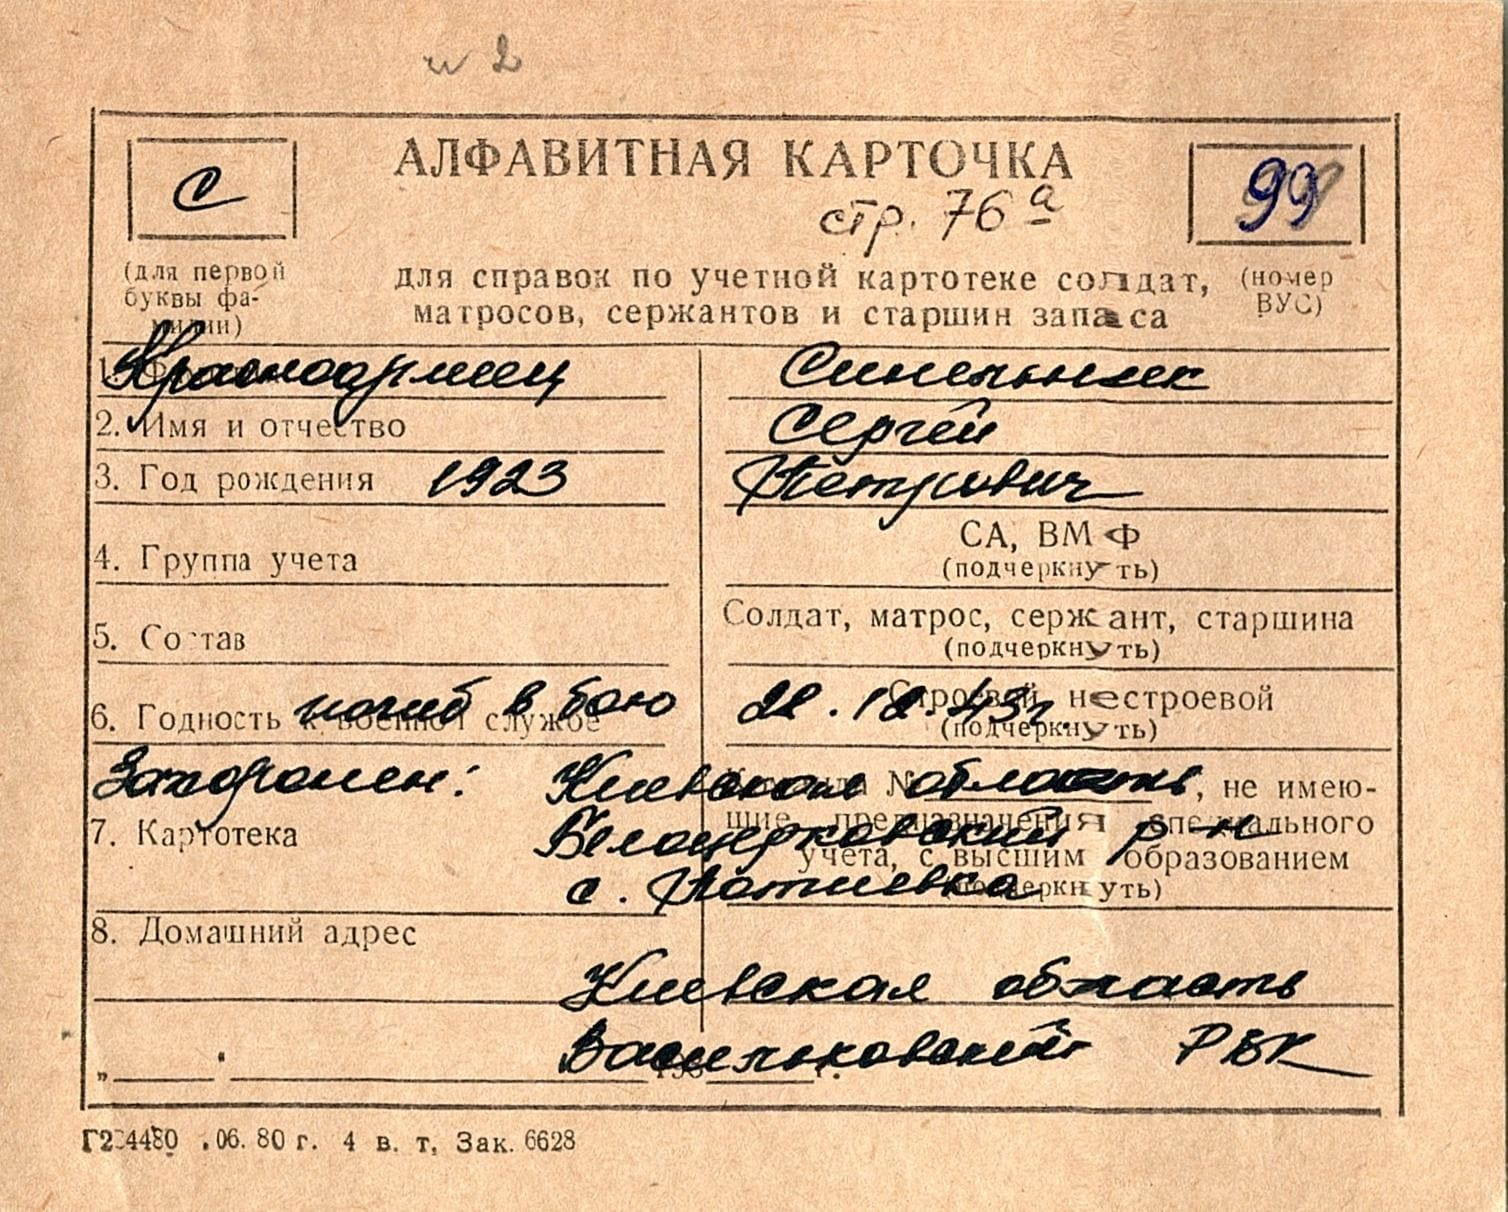 и 2
С
АЛФАВИТНАЯ КАРТОЧКА
99
стр. 76а
(для первой буквы фамилии)
для справок по учетной картотеке солдат,
матросов, сержантов и старшин запаса
(номер ВУС)
1. Красноармеец Синельник
2. Имя и отчество Сергей
3. Год рождения 1923 Петрович
4. Группа учета СА, ВМФ
(подчеркнуть)
5. Состав Солдат, матрос, сержант, старшина
(подчеркнуть)
6. Годность к военной службе Строевой, нестроевой
погиб в бою 43г.
(подчеркнуть)
Захоронен: Киевская область
, не имею-
7. Картотека щие предназначения специального
Белоцерковский р-н
учета, с высшим образованием
с.
(подчеркнуть)
8. Домашний адрес
Киевская область
Васильковский РВК
„ 198 г.
06. 80 г. 4 в. т, Зак. 6628